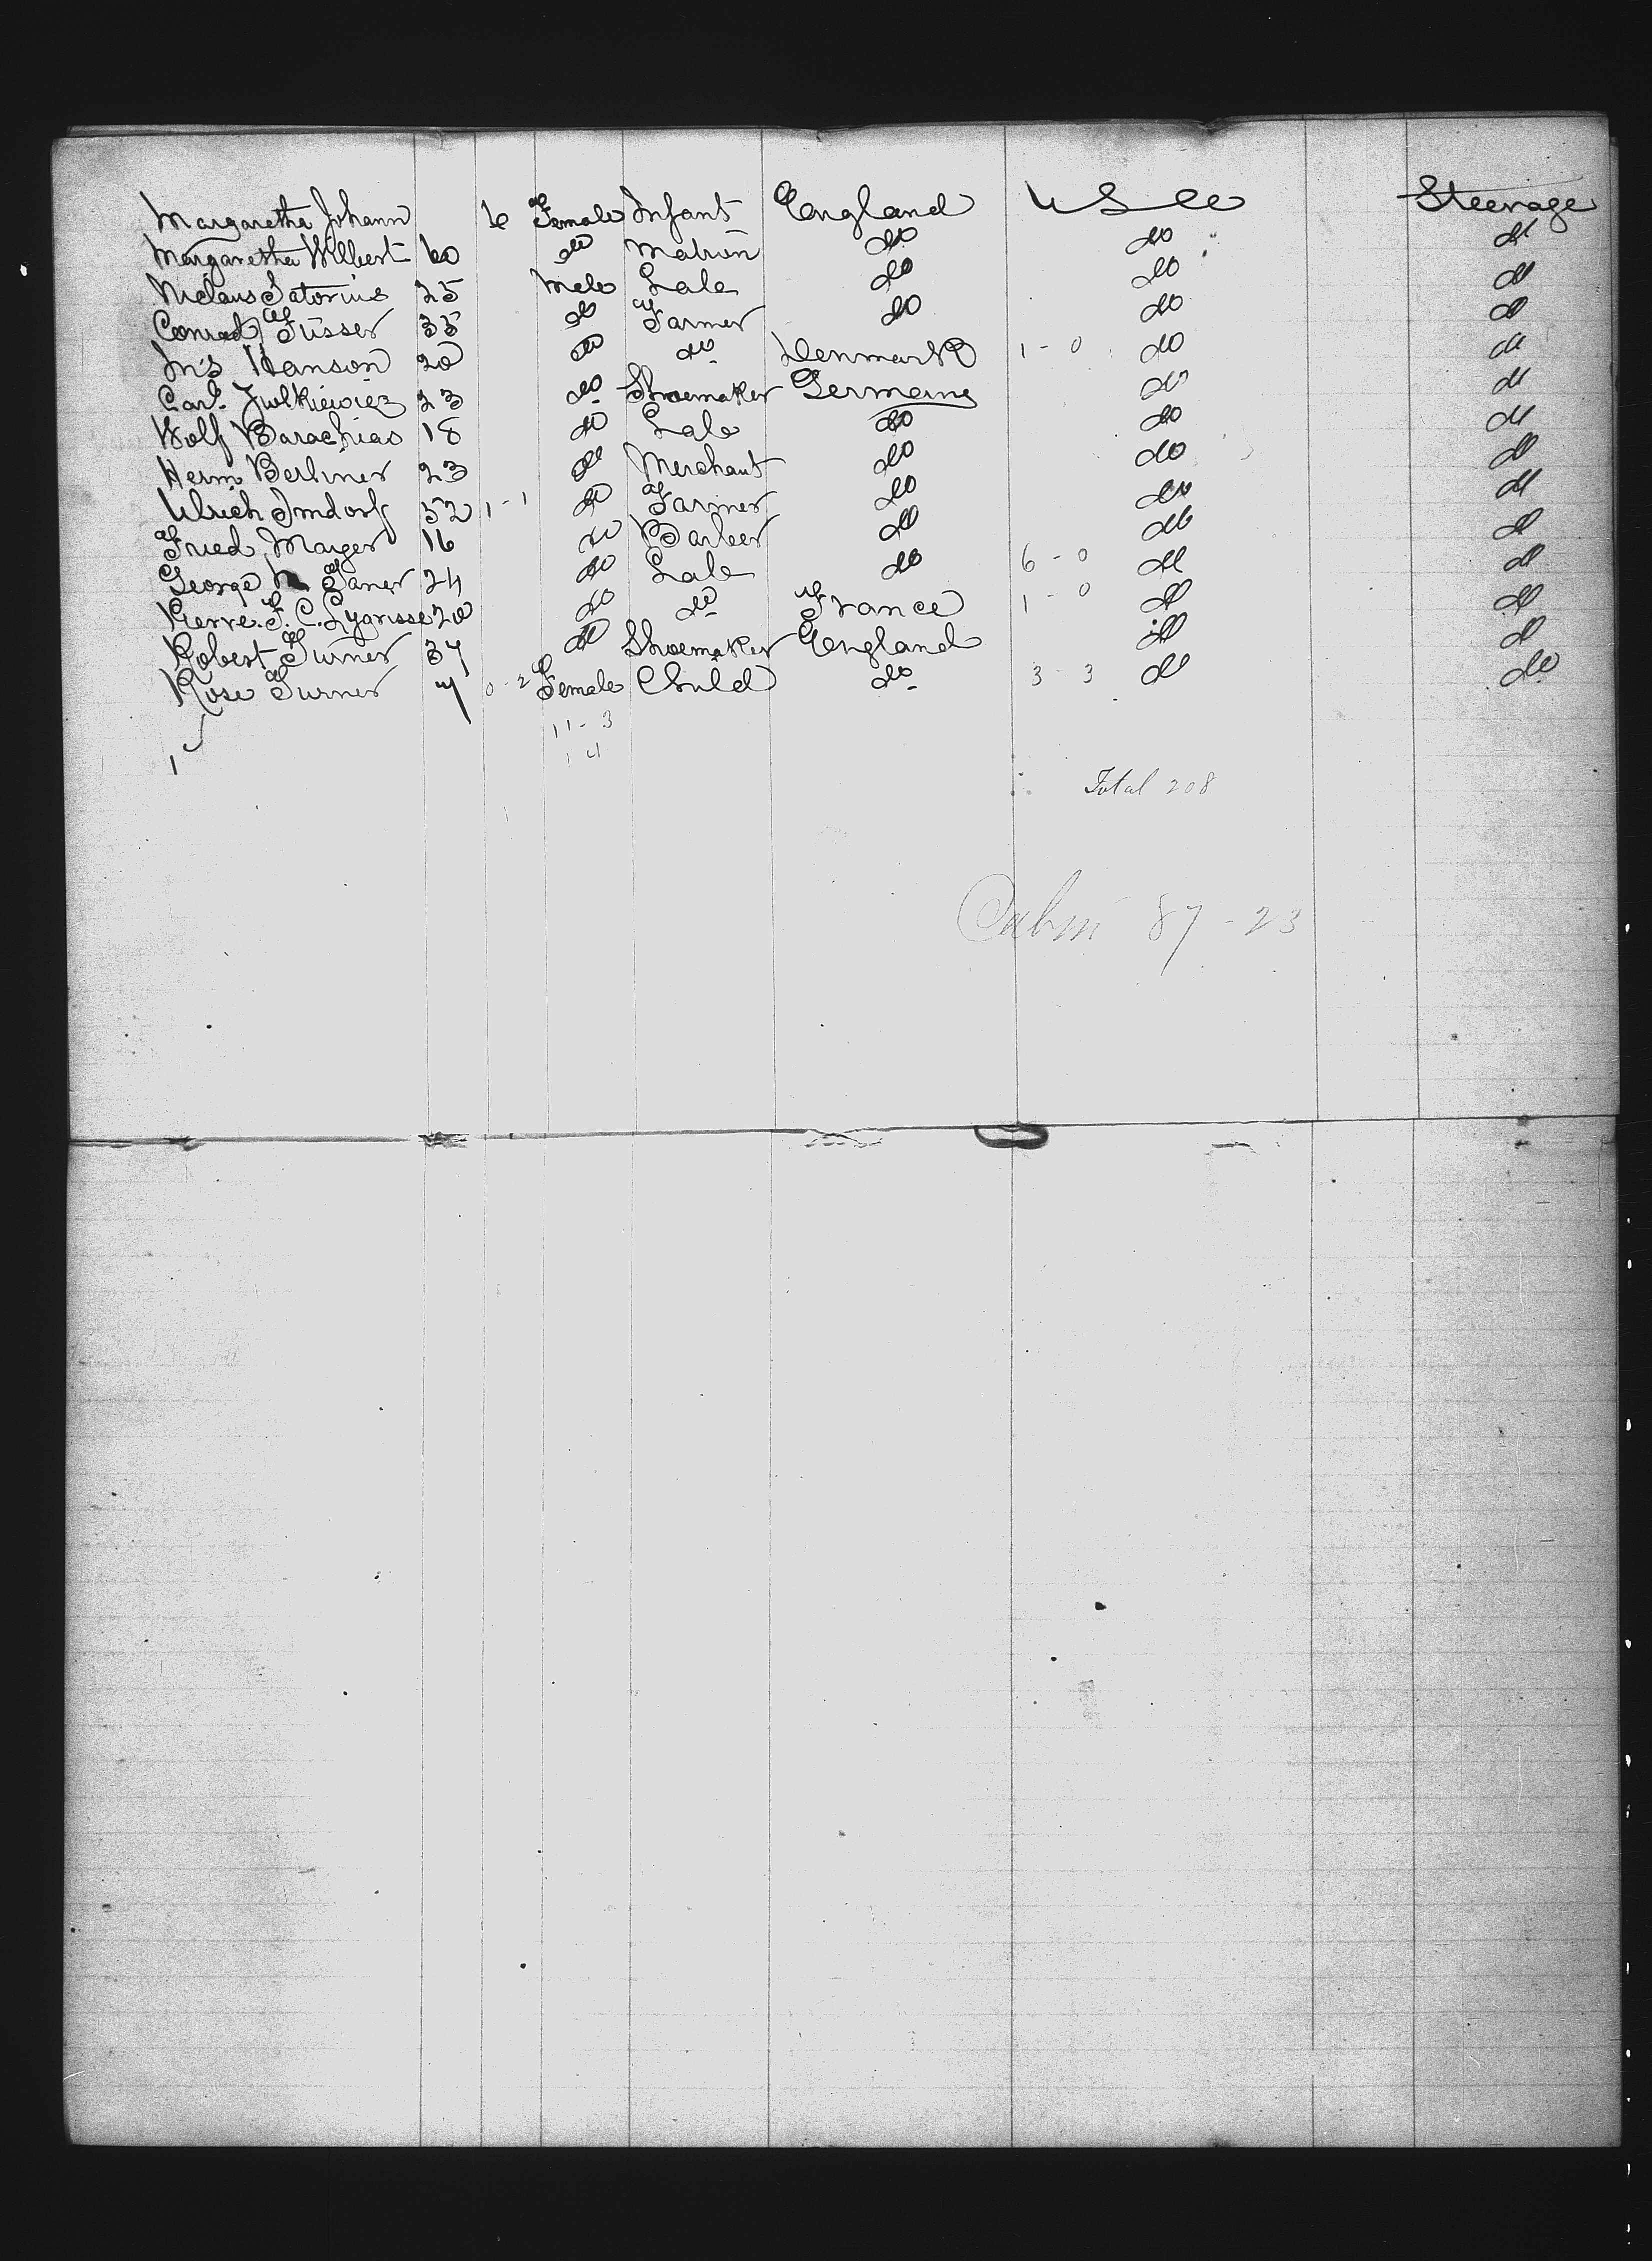 Margaretha Johann 6 Female Infant England U S A Steerage
Margaretha Wilbert 60 do Matron do do do
Niclaus Satorius 25 Male Lab do do do
Conrad Füsser 35 do Farmer do do do
Jn's Hanson 20 do do Denmark 1 - 0 do do
Carl 23 do Shoemaker Germany do do
Wolf Barachias 18 do Lab do do do
Herm Berliner 23 do Merchant do do do
Ulrich Imdorf 52 1 - 1 do Farmer do do do
Fried. Mayer 16 do Barber do do do
George 24 do Lab do 6 - 0 do do
Pierre F. C. 20 do do France 1 - 0 do do
Robert Turner 37 do Shoemaker England do do
Rose Turner 7 0 - 2 Female Child do 3 - 3 do do
11 - 3
14
Total 208
Cabin 87 - 23